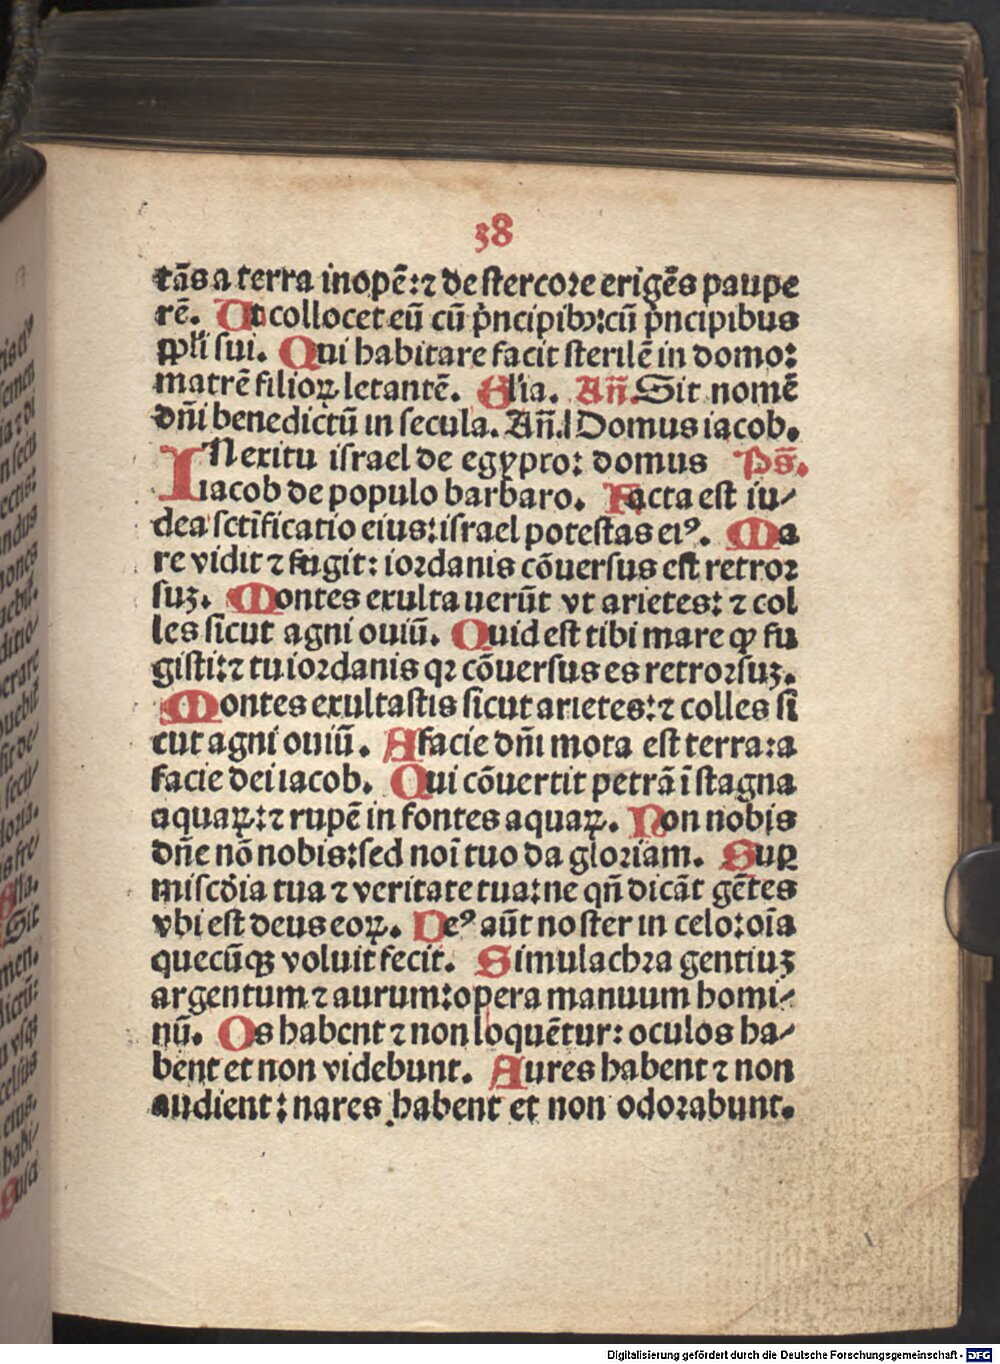 38
tãs a terra inopẽ: ⁊ de stercore erigẽs paupe
rẽ. Ut collocet eũ cũ p̃ncipibꝰ: cũ p̃ncipibus
ppl̃i sui. Qui habitare facit sterilẽ in domo:
matrẽ filioꝝ letantẽ. Gl̃ia. Añ. Sit nomẽ
dñi benedictũ in secula. Añ. Domus iacob.
IN exitu israel de egypto: domus Ps̃.
iacob de populo barbaro. Facta est iu⸗
dea sctĩficatio eius: israel potestas eiꝰ. Ma
re vidit ⁊ fugit: iordanis cõuersus est retror
suz. Montes exultauerũt vt arietes: ⁊ col
les sicut agni ouiũ. Quid est tibi mare ꝙ fu
gisti: ⁊ tu iordanis qꝛ cõuersus es retrorsuz.
Montes exultastis sicut arietes: ⁊ colles si
cut agni ouiũ. A facie dñi mota est terra: a
facie dei iacob. Qui cõuertit petrã ĩ stagna
aquaꝝ: ⁊ rupẽ in fontes aquaꝝ. Non nobis
dñe nõ nobis: sed noĩ tuo da gloriam. Sup
miscd̃ia tua ⁊ veritate tua: ne qñ dicãt gẽtes
vbi est deus eoꝝ. Deꝰ aũt noster in celo: oĩa
quecũqꝫ voluit fecit. Simulachra gentiuz
argentum ⁊ aurum: opera manuum homi⸗
nũ. Os habent ⁊ non loquẽtur: oculos ha⸗
bent et non videbunt. Aures habent ⁊ non
audient: nares habent et non odorabunt.
Digitalisierung gefördert durch die Deutsche Forschungsgemeinschaft - DFG